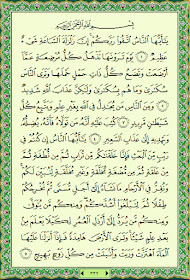 بِسْمِ اللَّهِ الرَّحْمَٰنِ الرَّحِيمِ
يَٰٓأَيُّهَا النَّاسُ اتَّقُوا رَبَّكُمْ إِنَّ زَلْزَلَةَ السَّاعَةِ شَيْءٌ
عَظِيمٌ ١ يَوْمَ تَرَوْنَهَا تَذْهَلُ كُلُّ مُرْضِعَةٍ عَمَّا
أَرْضَعَتْ وَتَضَعُ كُلُّ ذَاتِ حَمْلٍ حَمْلَهَا وَتَرَى النَّاسَ
سُكَٰرَىٰ وَمَا هُم بِسُكَٰرَىٰ وَلَٰكِنَّ عَذَابَ اللَّهِ شَدِيدٌ
٢ وَمِنَ النَّاسِ مَن يُجَٰدِلُ فِي اللَّهِ بِغَيْرِ عِلْمٍ وَيَتَّبِعُ كُلَّ
شَيْطَٰنٍ مَّرِيدٍ ٣ كُتِبَ عَلَيْهِ أَنَّهُ مَن تَوَلَّاهُ فَأَنَّهُ يُضِلُّهُ
وَيَهْدِيهِ إِلَىٰ عَذَابِ السَّعِيرِ ٤ يَٰٓأَيُّهَا النَّاسُ إِن كُنتُمْ فِي
رَيْبٍ مِّنَ الْبَعْثِ فَإِنَّا خَلَقْنَٰكُم مِّن تُرَابٍ ثُمَّ مِن نُّطْفَةٍ ثُمَّ
مِنْ عَلَقَةٍ ثُمَّ مِن مُّضْغَةٍ مُّخَلَّقَةٍ وَغَيْرِ مُخَلَّقَةٍ لِّنُبَيِّنَ لَكُمْ وَنُقِرُّ
فِي الْأَرْحَامِ مَا نَشَآءُ إِلَىٰٓ أَجَلٍ مُّسَمًّى ثُمَّ نُخْرِجُكُمْ
طِفْلًا ثُمَّ لِتَبْلُغُوٓا أَشُدَّكُمْ وَمِنكُم مَّن يُتَوَفَّىٰ
وَمِنكُم مَّن يُرَدُّ إِلَىٰٓ أَرْذَلِ الْعُمُرِ لِكَيْلَا يَعْلَمَ مِن
بَعْدِ عِلْمٍ شَيْـًٔا وَتَرَى الْأَرْضَ هَامِدَةً فَإِذَآ أَنزَلْنَا عَلَيْهَا
الْمَآءَ اهْتَزَّتْ وَرَبَتْ وَأَنبَتَتْ مِن كُلِّ زَوْجٍ بَهِيجٍ ٥
٣٣٢